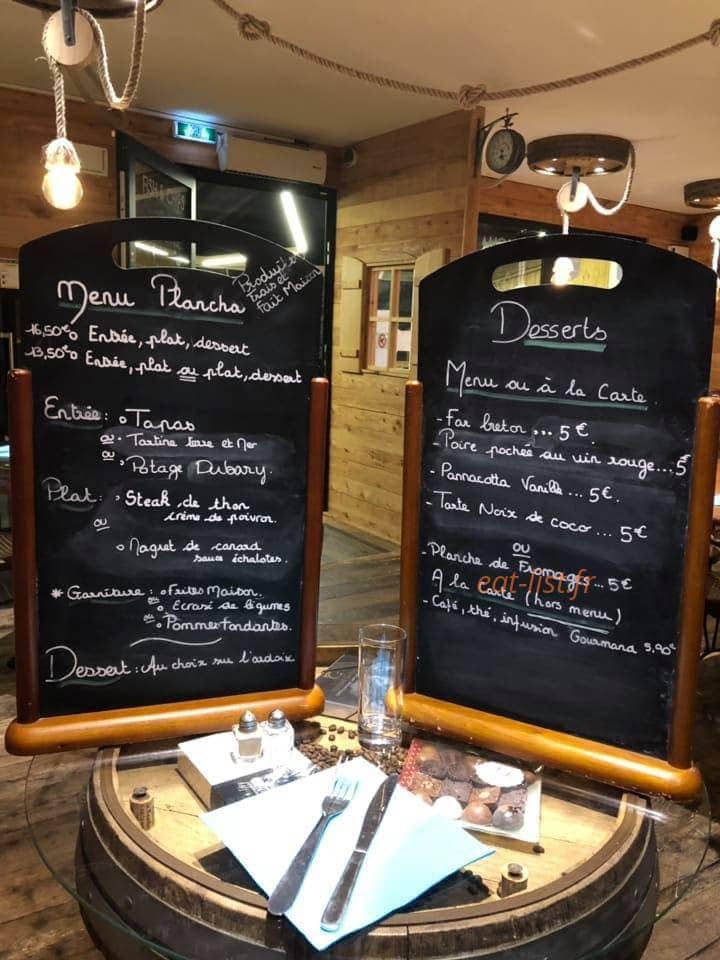 Menu Plancha
Produits
Frais et
Fait Maison
16,50€ o Entrée, plat, dessert
13,50€ o Entrée, plat ou plat, dessert
Entrée : o Tapas
ou • Tartine terre et Mer
ou • Potage Dubary.
Plat : • Steak de thon
crème de poivron.
ou
o Magret de canard
sauce échalotes.
* Garniture : o Frites Maison.
ou o Ecrasé de légumes
ou o Pommes fondantes.
Dessert : Au choix sur l'ardoise
Desserts
Menu ou à la Carte.
- Far breton ... 5€.
- Poire pochée au vin rouge ... 5€
- Pannacotta Vanille ... 5€.
- Tarte Noix de coco ... 5€
ou
- Planche de Fromages ... 5€
A la Carte (hors menu)
- Café, thé, infusion Gourmand 5,90€
eat-list.fr